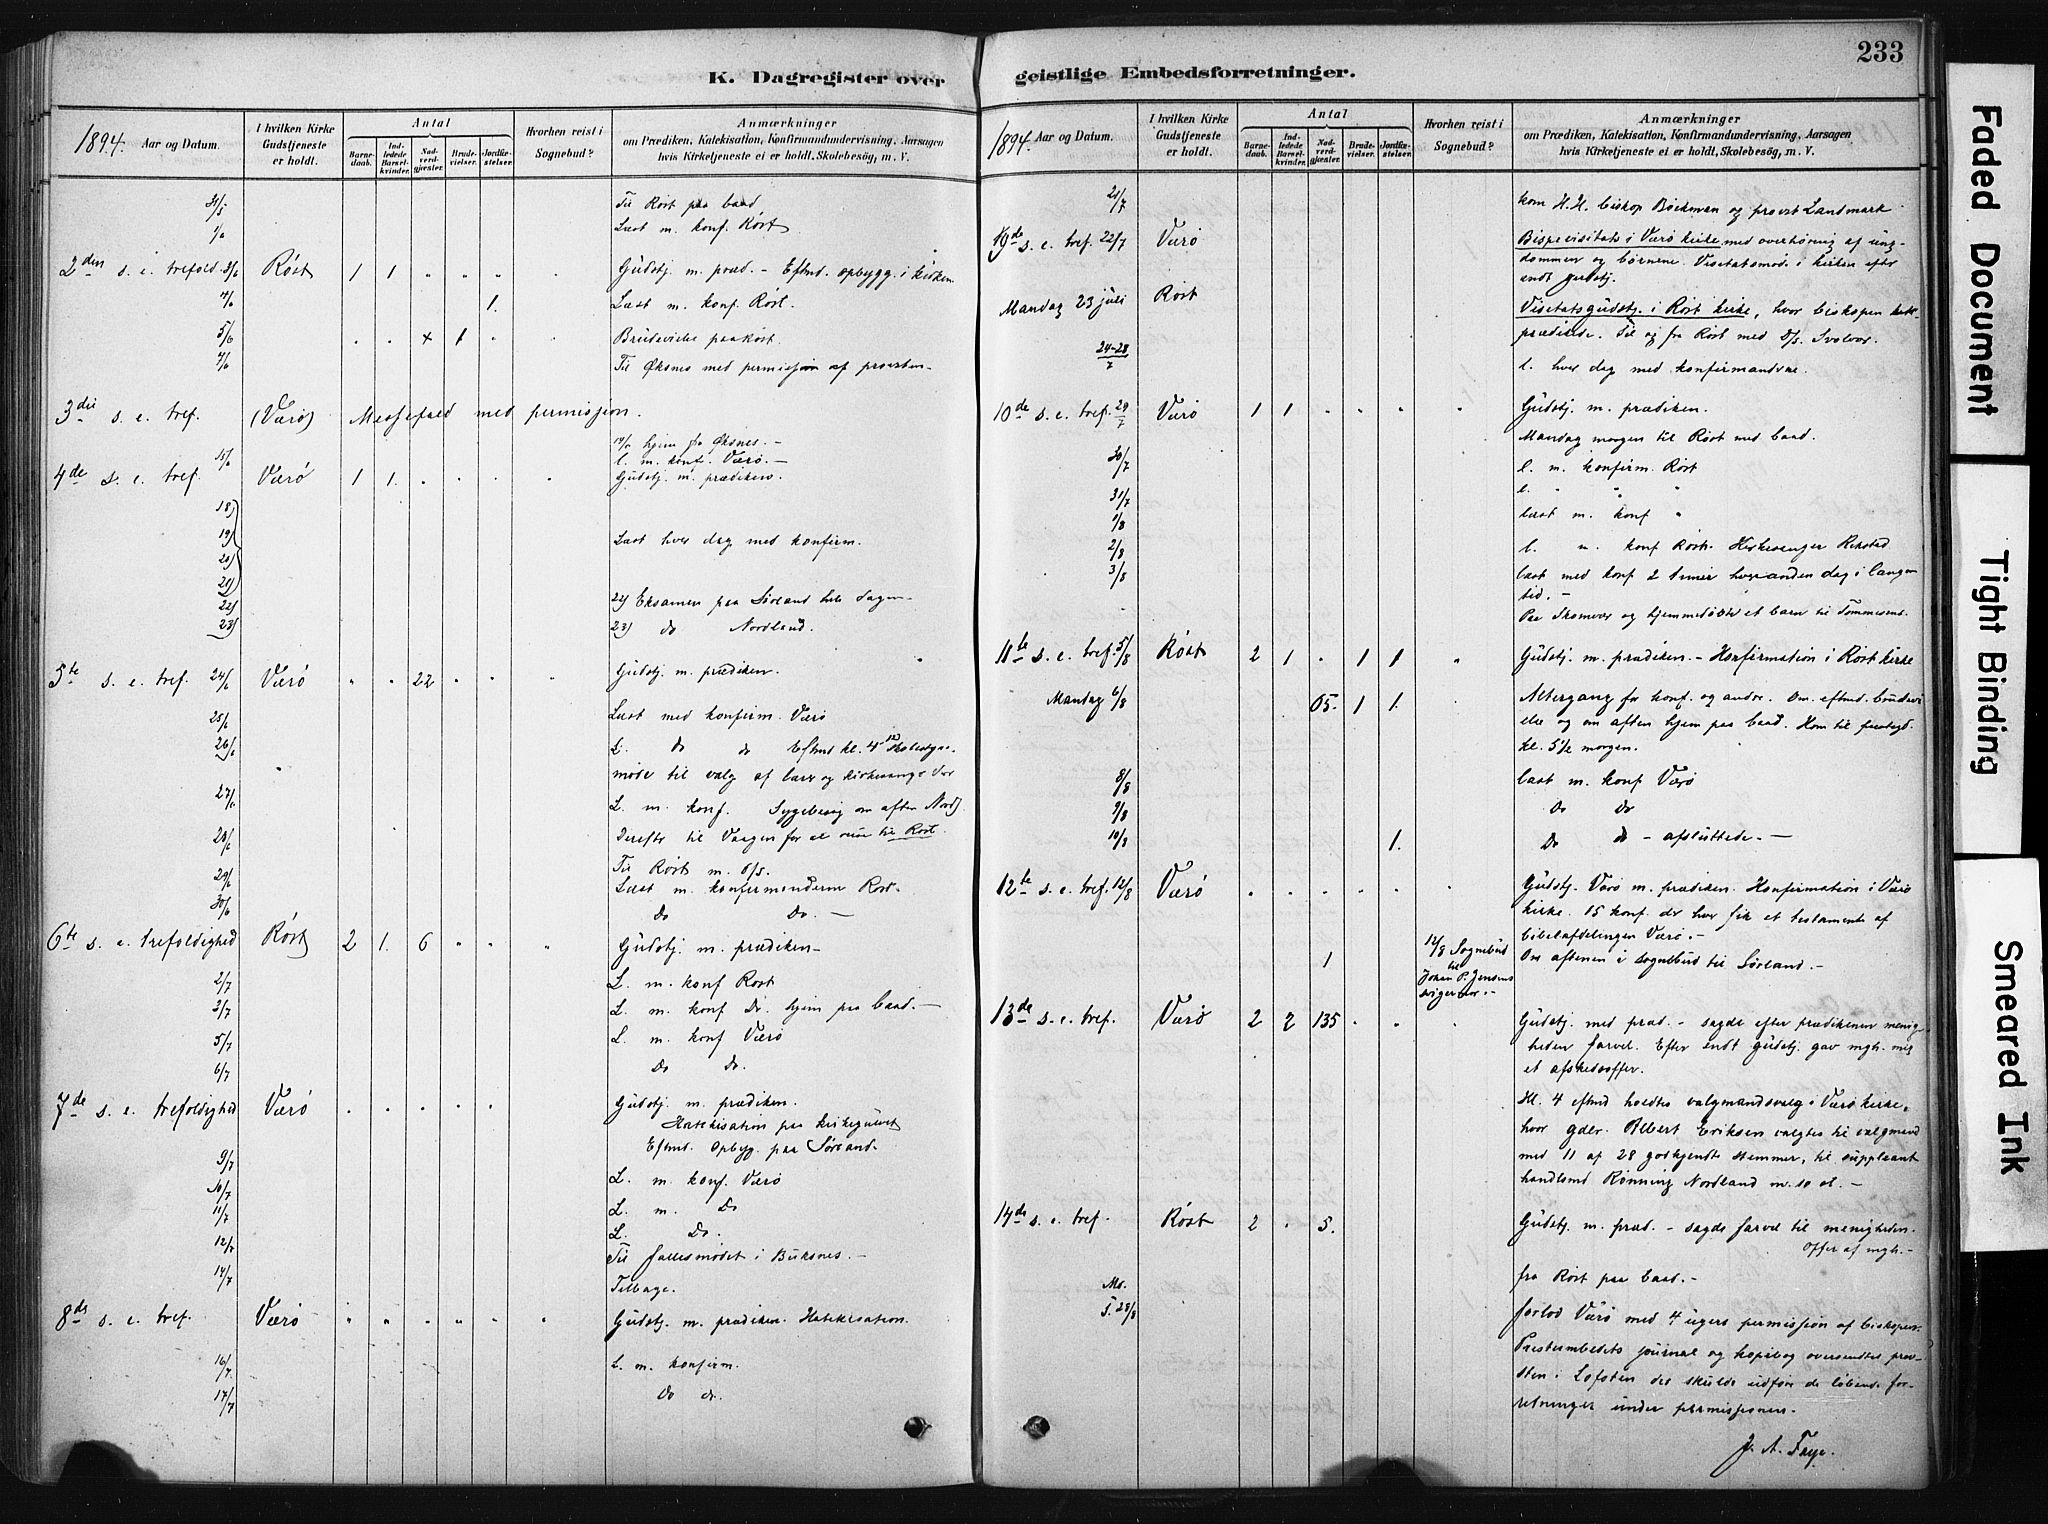 K. Dagregister over
1894. Aar og Datum.
I hvilken Kirke Gudstjeneste er holdt.
Antal
Barnedaab.
Indledede Barselkvinder.
Nadverdgjester.
Brudevielser.
Jordfæstelser.
Hvorhen reist i Sognebud?
Anmærkninger
om Prædiken, Katekisation, Konfirmandundervisning, Aarsagen
hvis Kirketjeneste ei er holdt, Skolebesög, m. V.
31/5 Til Røst paa baad
1/6 Læst m. konf. Røst.
2den s. e. trefold. 3/6 Røst 1 1 " " " " Gudstj. m. præd. - Eftmd. opbygg. i kirken.
4/6 1. Læst m. konf. Røst.
5/6 . . + 1 " " Brudevielse paa Røst.
7/6 Til Øksnes med permission af provsten.
3die s. e. tref. (Værø) Messefald med permission.
14/6 hjem fra Øksnes. -
15/6 l. m. konf. Værø. -
4de s. e. tref. Værø 1 1. . . . . Gudstj. m. prædiken.
18)
19) Læst hver dag med konfirm.
20)
21)
22) 22) Eksamen paa Sørland hele dagen
23) 23) do Nordland.
5te s. e. tref. 24/6 Værø " " 22 " " " Gudstj. m. prædiken.
25/6 Læst med konfirm. Værø
26/6 L. do do Eftmd kl. 4
møde til valg af lærer og kirkesanger
27/6 L. m. konf. Sygebesøg om aften Nordl.
28/6 Derefter til Vaagen for at reise til Røst.
Til Røst m. D/S.
29/6 Læst m. konfirmanderne Røst.
30/6 Do Do. -
6te s. e. trefoldighed Røst 2 1. 6 " " " Gudstj. m. prædiken -
2/7 L. m. konf Røst
3/7 L. m. konf Do. hjem paa baad. -
5/7 L. m. konf Værø
6/7 Do Do.
7de s. e. trefoldighed Værø . . . . . Gudstj. m. prædiken.
Katekisation paa kirkegulvet
Eftmd. opbyg. paa Sørland.
9/7 L. m. konf. Værø
10/7 L. m. Do
11/7 L. Do.
12/7 Til fællesmødet i Buksnes. -
14/7 Tilbage.
8de s. e. tref. Værø " " " " " " Gudstj. m. prædiken. Katekisation.
16/7 L. m. konfirm.
17/7 Do do.
geistlige Embedsforretninger.
233
1894. Aar og Datum.
I hvilken Kirke Gudstjeneste er holdt.
Antal
Barnedaab.
Indledede Barselkvinder.
Nadverdgjester.
Brudevielser.
Jordfæstelser.
Hvorhen reist i Sognebud?
Anmærkninger
om Prædiken, Katekisation, Konfirmandundervisning, Aarsagen
hvis Kirketjeneste ei er holdt, Skolebesög, m. V.
21/7 kom H. H. biskop Bøckman og provst Landmark
9de s. e. tref. 22/7 Værø Bispevisitats i Værø kirke med overhøring af ung-
dommen og børnene. Visitatsmøde i kirken efter
endt gudstj.
Mandag 23 juli Røst Visitatsgudstj. i Røst kirke, hvor biskopen
prædikede. Til og fra Røst med D/S. Svolvær.
24-28/7 l. hver dag med konfirmanderne.
10de s. e. tref. 29/7 Værø 1 1 . . . . Gudstj. m. prædiken.
Mandag morgen til Røst med baad.
30/7 l. m. konfirm. Røst
31/7 l. " " "
1/8 læst m. konf "
2/8 l. m. konf Røst. Kirkesanger Rikstad
3/8 læst med konf 2 timer hver anden dag i længere
tid. -
Paa Skomvær og hjemmedøbte et barn til
11te s. e. tref. 5/8 Røst 2 1 . 1 1 " Gudstj. m. prædiken. - Konfirmation i Røst kirke
Mandag 6/8 65. 1 1. Altergang for konf. og andre. Om eftmd. brudevi-
else og om aften hjem paa baad. Kom til
kl. 5 1/2 morgen.
8/8 læst m. konf Værø
9/8 Do Do
10/8 1. Do do - afsluttede. -
12te s. e. tref. 12/8 Værø . . . . . " Gudstj. Værø m. prædiken. Konfirmation i Værø
kirke. 15 konf. der hver fik et testamente af
bibelafdelingen Værø. -
1 12/8 Sognebud til Johan P. Jensens svigermor. - Om aftenen i sognebud til Sørland. -
13de s. e. tref. Værø 2 2 135 . . " Gudstj. med præd. - sagde efter prædikenen menig-
heden farvel. Efter endt gudstj. gav mgh. mig
et afskedsoffer.
Kl. 4 eftmd holdtes valgmandsvalg i Værø kirke,
hvor gdbr. Albert Eriksen valgtes til valgmand
med 11 af 28 godkjendte stemmer, til suppleant
handlsmd Rønning Nordland m. 10 st. -
14de s. e. tref. Røst 2 . 5. Gudstj. m. præd. - sagde farvel til menigheden.
Offer af mgh. -
Ma. fra Røst paa baad. -
T. 28/8 forlod Værø med 4 ugers permission af biskopen.
Presteembedets journal og kopibog oversendtes prov-
sten i Lofoten der skulde udføre de løbende for-
retninger under permissionen.
J. A. Frye.
Faded Document
Tight Binding
Smeared Ink